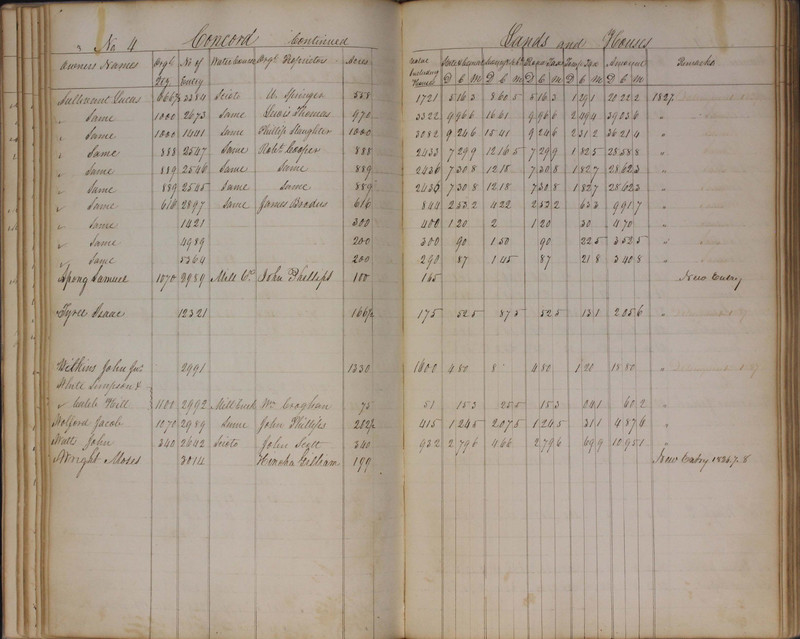 No 4 Concord Continued Lands and Houses
Owners Names Orgl No of Water Course Orgl Proprietors Acres Value Road Tax Amount Remarks
Entry Including Houses D C M D C M D C M D C M D C M
Lucas 3384 Scioto Springer 558 1721 5 16 3 8 60 5 5 16 3 1 29 1 20 22 2 1827
Same 1000 2673 Same Thomas 970 3322 9 96 6 16 61 9 96 6 2 49 4 39 03 6 "
Same 1000 1401 Same Philip Slaughter 1000 3082 9 24 6 15 41 9 24 6 2 31 2 36 21 4 "
Same 888 2547 Same Robt Cooper 888 2433 7 29 9 12 16 5 7 29 9 1 82 5 28 58 8 "
Same 889 2546 Same Same 889 2436 7 30 8 12 18 7 30 8 1 82 7 28 62 3 "
Same 889 2545 Same Same 889 2436 7 30 8 12 18 7 30 8 1 82 7 28 62 3 "
Same 616 2897 Same James Brodus 616 844 2 53 2 4 22 2 53 2 63 3 9 91 7 "
Same 1421 300 400 1 20 2 1 20 30 4 70 "
Same 4989 200 300 90 1 50 90 22 5 3 52 5 "
Same 5364 200 290 87 1 45 87 21 8 3 40 8 "
Spong Samuel 1070 2989 Mill Ck John Phillips 100 165 New Entry
Tyree Isaac 12321 166 2/3 175 52 5 87 5 52 5 13 1 2 05 6 "
Wilkins John Junr 2991 1330 1600 4 80 8 4 80 1 20 18 80 "
White Simpson &
Hill 1100 2992 Mill Creek Wm Croghan 75 51 15 3 25 5 15 3 04 1 60 2 "
Wolford Jacob 1070 2989 Same John Phillips 415 1 24 5 2 07 5 1 24 5 31 1 4 87 6 "
Watt John 340 2642 Scioto John Scott 340 932 2 79 6 4 66 2 79 6 69 9 10 95 1 "
Wright Moses 3014 Gilliam 199 New Entry